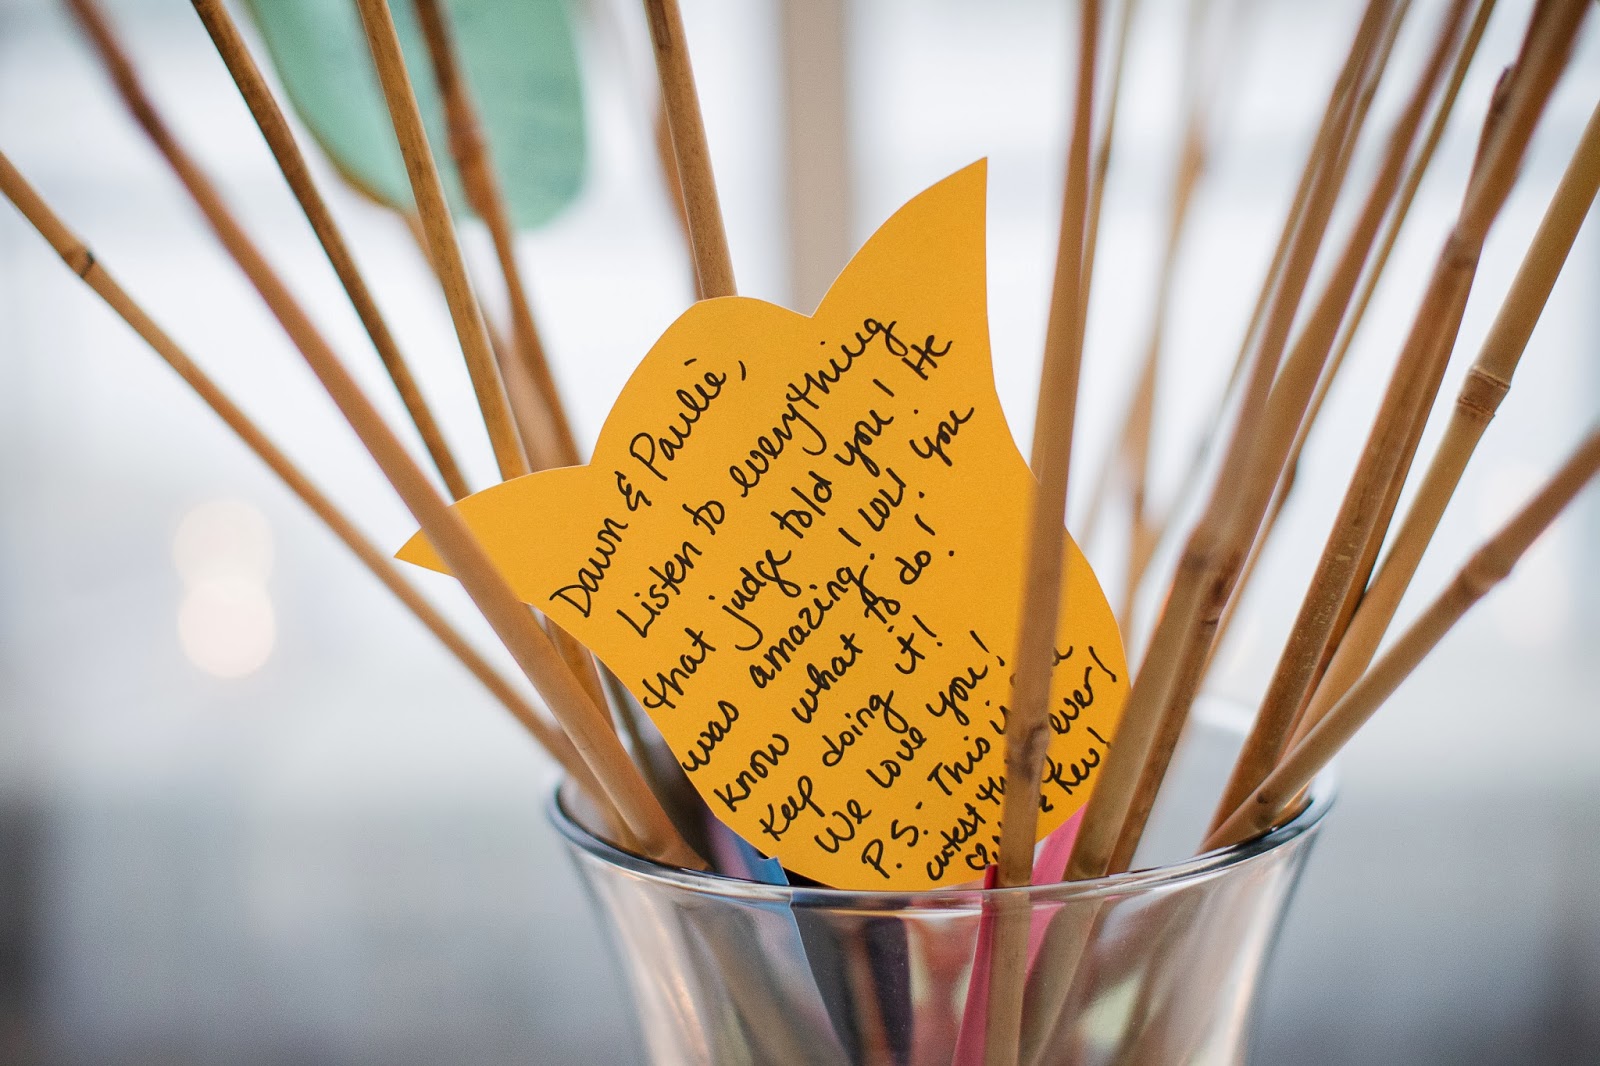 Dawn & Paulie,
Listen to everything
that judge told you! He
was amazing. LOL! You
know what to do!
Keep doing it!
We love you!
P.S. - This is
cutest ever!
& Kev!